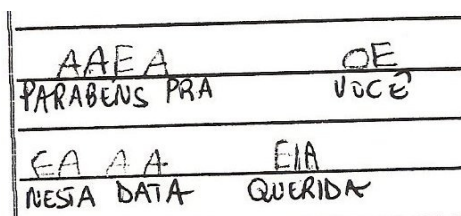 AAEA OE
PARABENS PRA VOCÊ
EA A A EIA
NESTA DATA QUERIDA